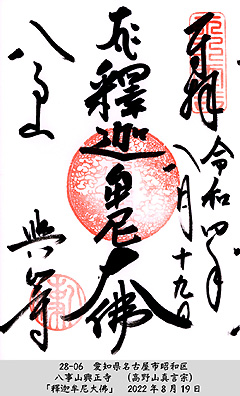 奉拝
令和四年
八月十九日
釋迦牟尼大佛
八事山
興正寺
28-06 愛知県名古屋市昭和区
八事山興正寺 (高野山真言宗)
「釈迦牟尼大佛」 2022年8月19日